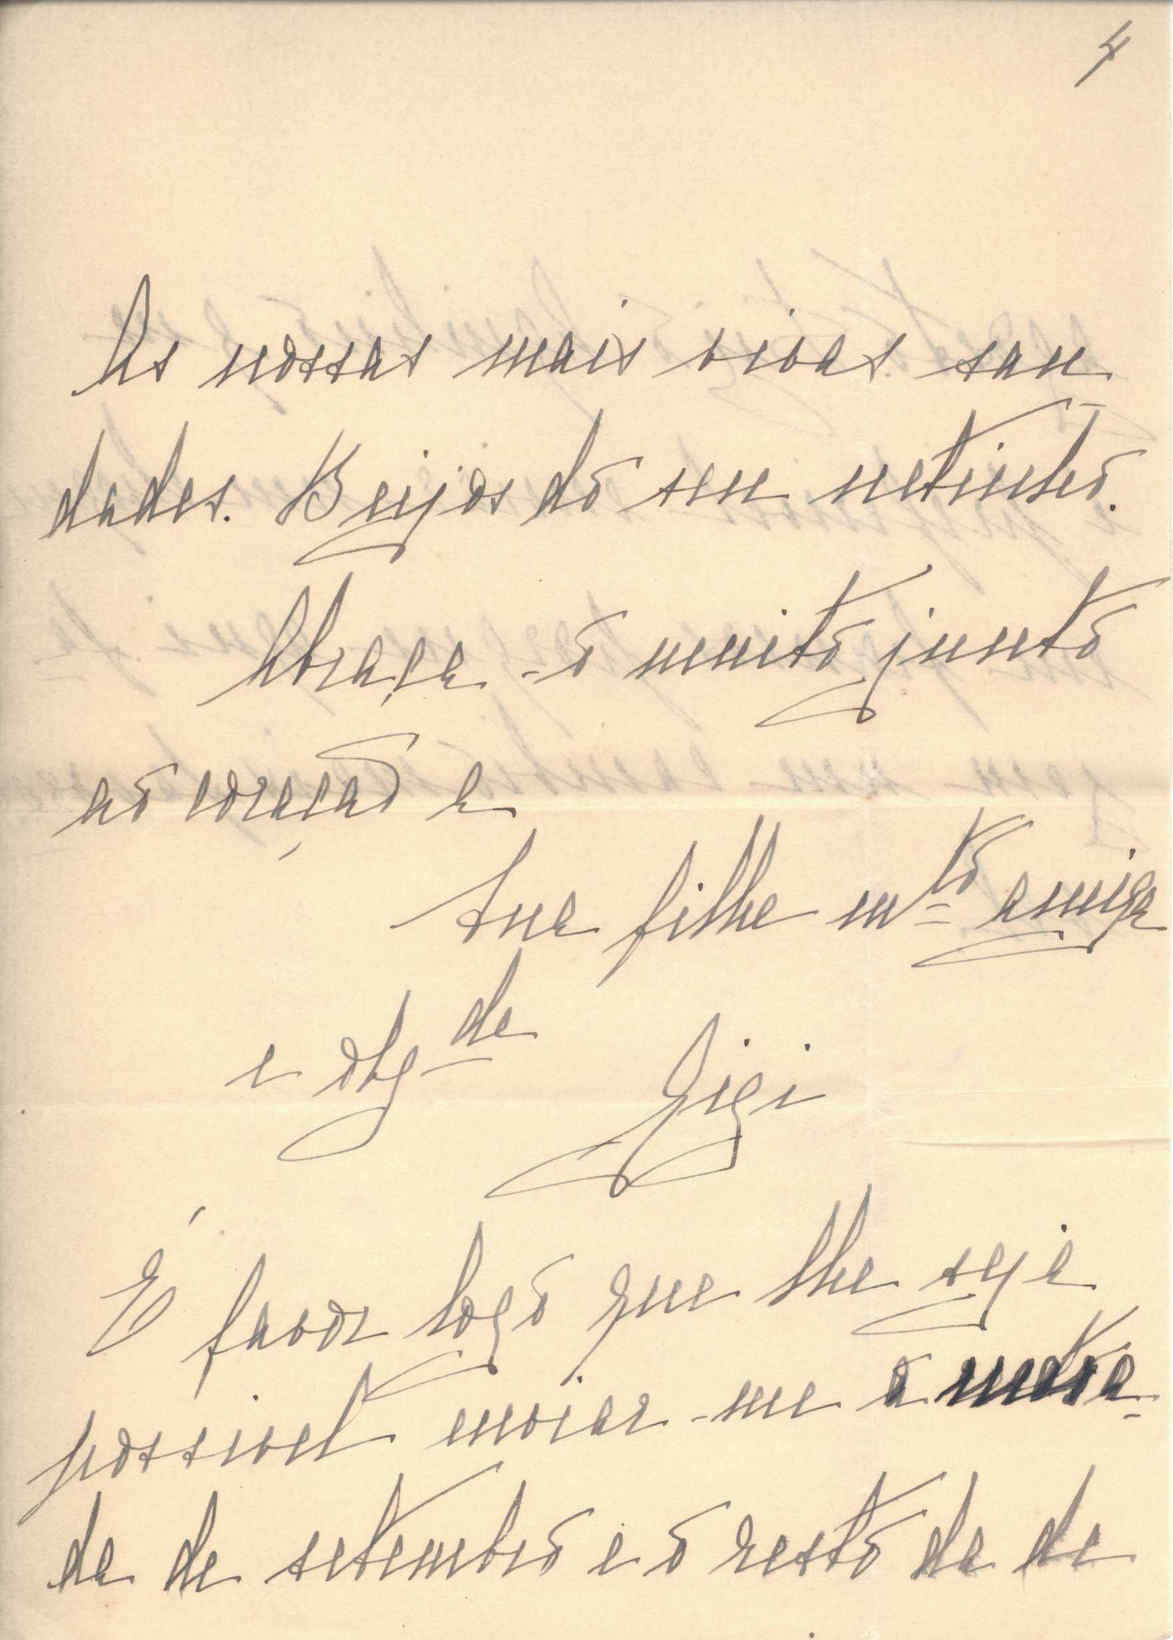 4
As nossas mais vivas sau-
dades. Beijos do seu netinho.
Abraça-o muito junto
ao coração a
Sua filha mto amiga
e obgda
Gigi
É favor logo que lhe seja
possivel enviar-me a meza-
da de setembro e o resto da de